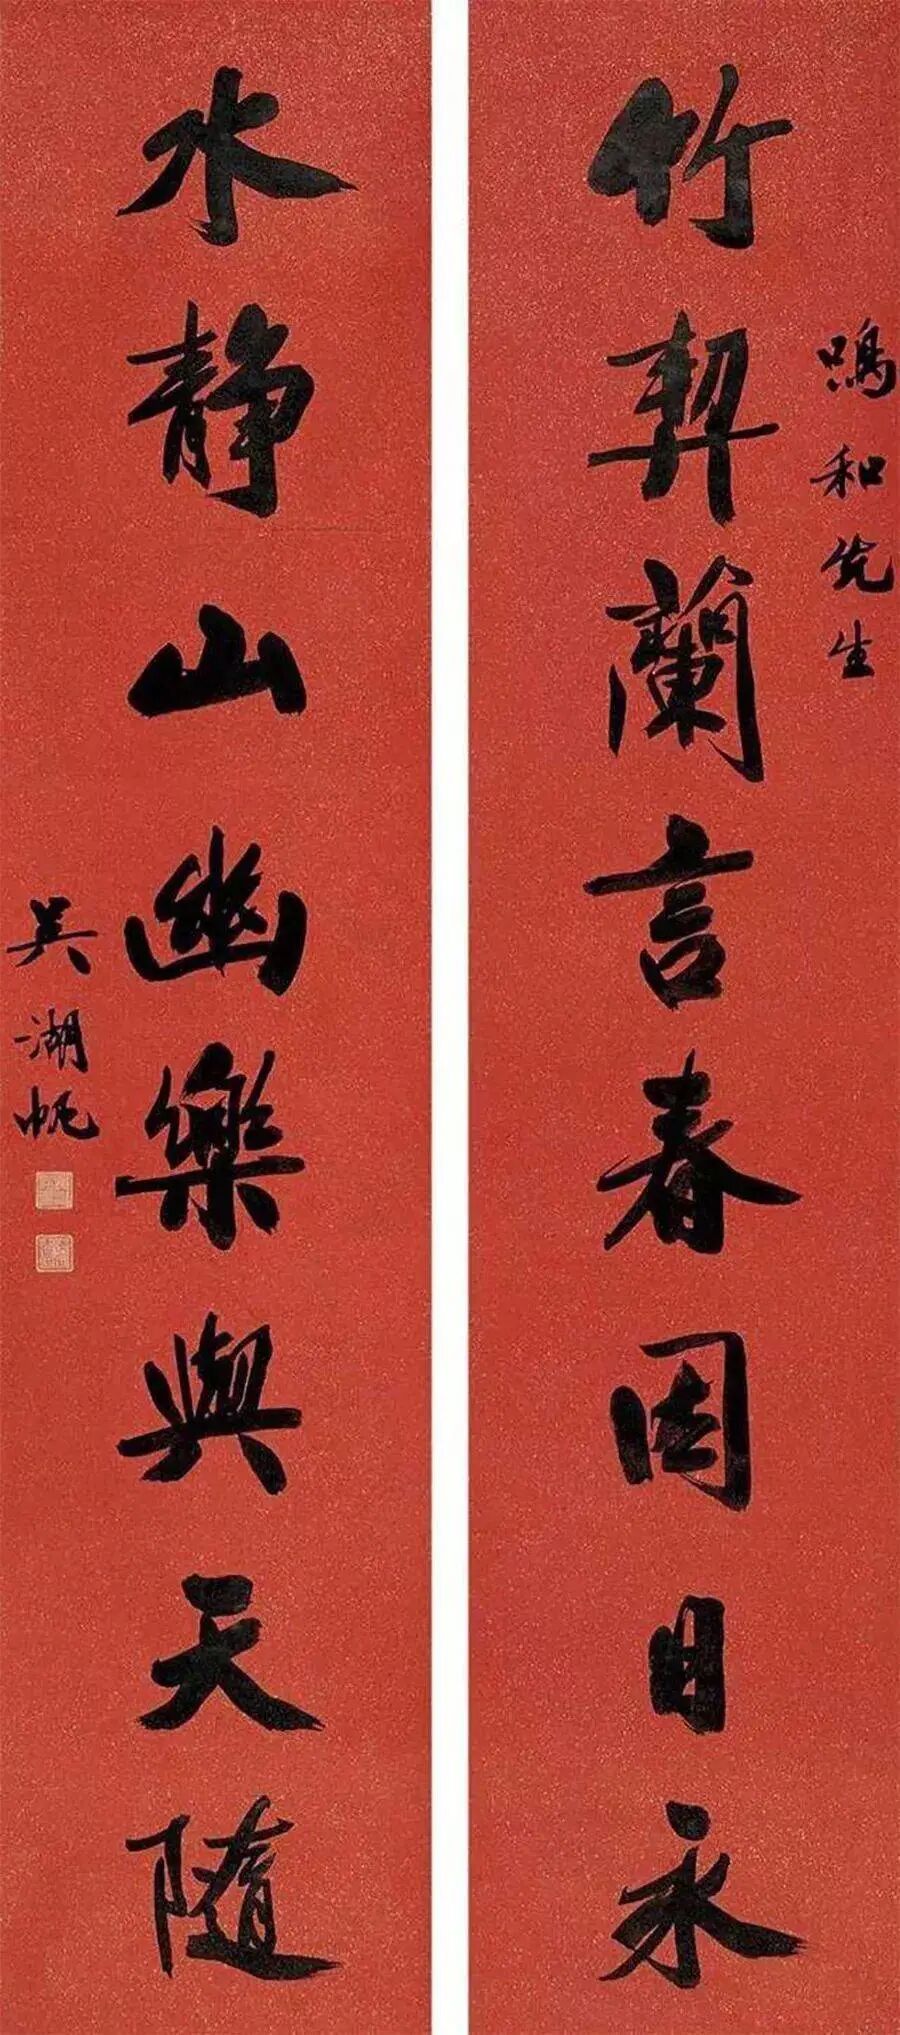 鳴和先生
竹契蘭言春因日永
水静山幽樂與天隨
吴湖帆